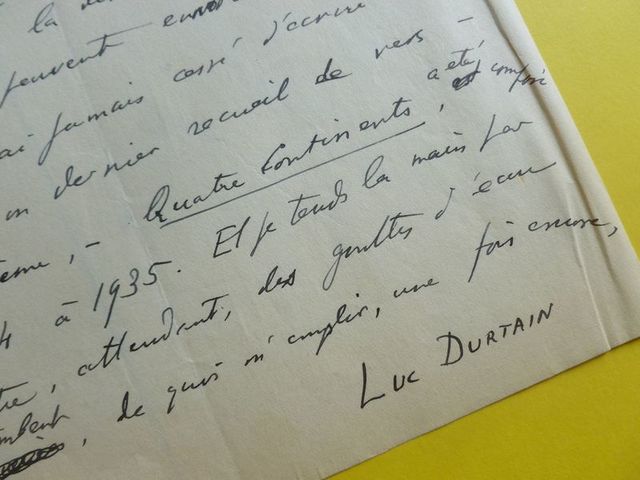 la
peuvent
ai jamais cessé d'écrire
on dernier recueil de vers -
ème, - Quatre Continents, a été composé
4 à 1935. Et je tends la main par
tre, attendant, des gouttes d'eau
ombent, de quoi m'emplir, une fois encore,
LUC DURTAIN